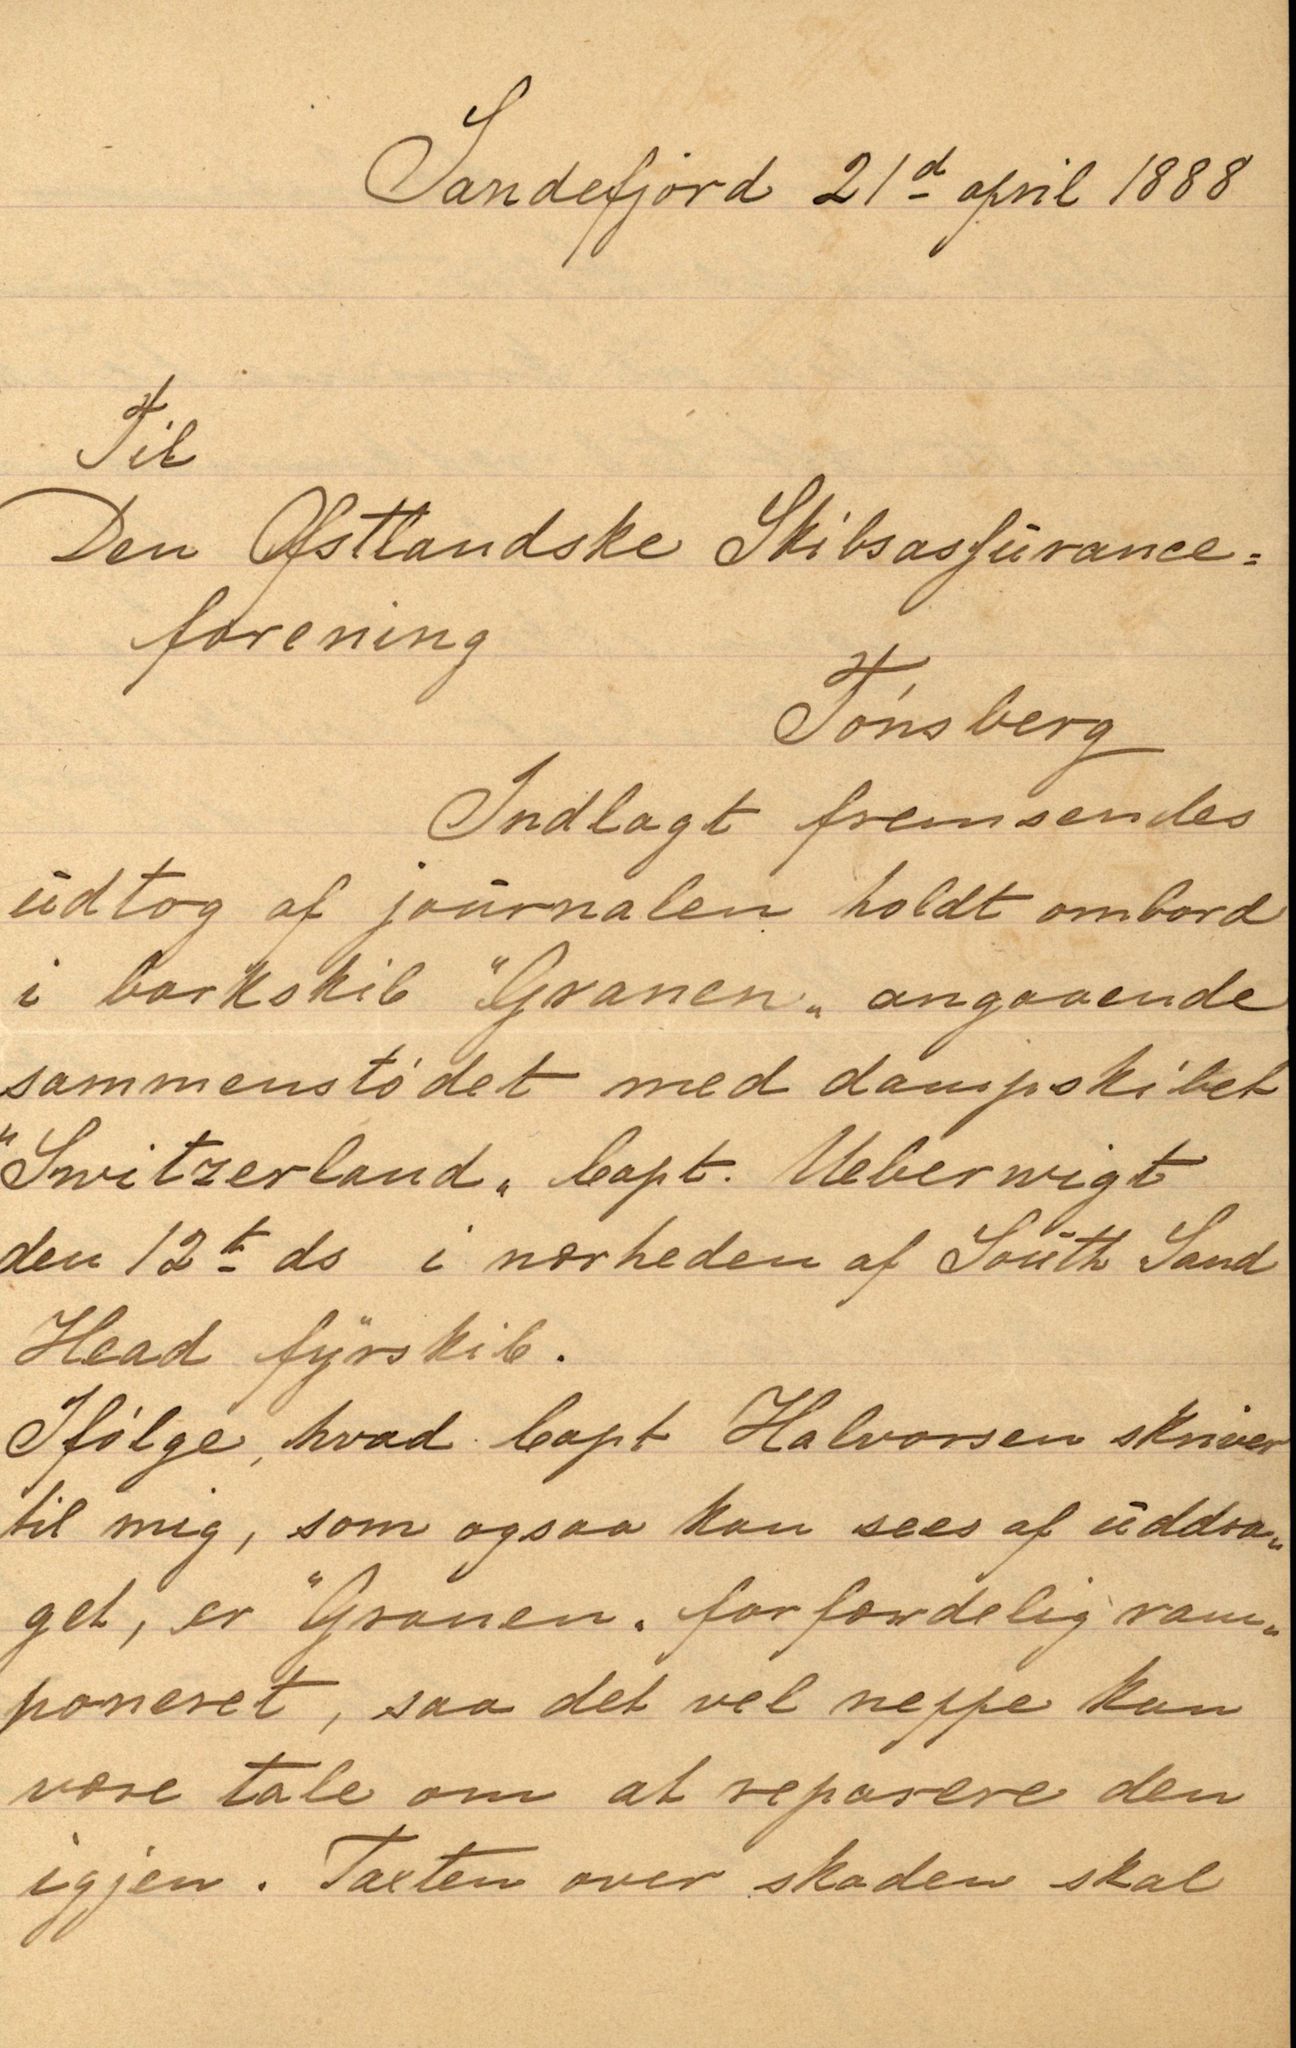 Sandefjord 21d april 1888
Til
Den Østlandske Skibsassurance=
forening
Tönsberg
Indlagt fremsendes
udtog af journalen holdt ombord
i barkskib "Granen" angaaende
sammenstödet med dampskibet
"Switzerland" Capt. Ueberwigt
den 12t ds i nærheden af South Sand
Head fyrskib.
Ifölge, hvad Capt Halvorsen skriver
til mig, som ogsaa kan sees af uddra„
get, er "Granen" forfærdelig ram„
poneret, saa det vel neppe kan
være tale om at reparere den
igjen. Taxten over skaden skal